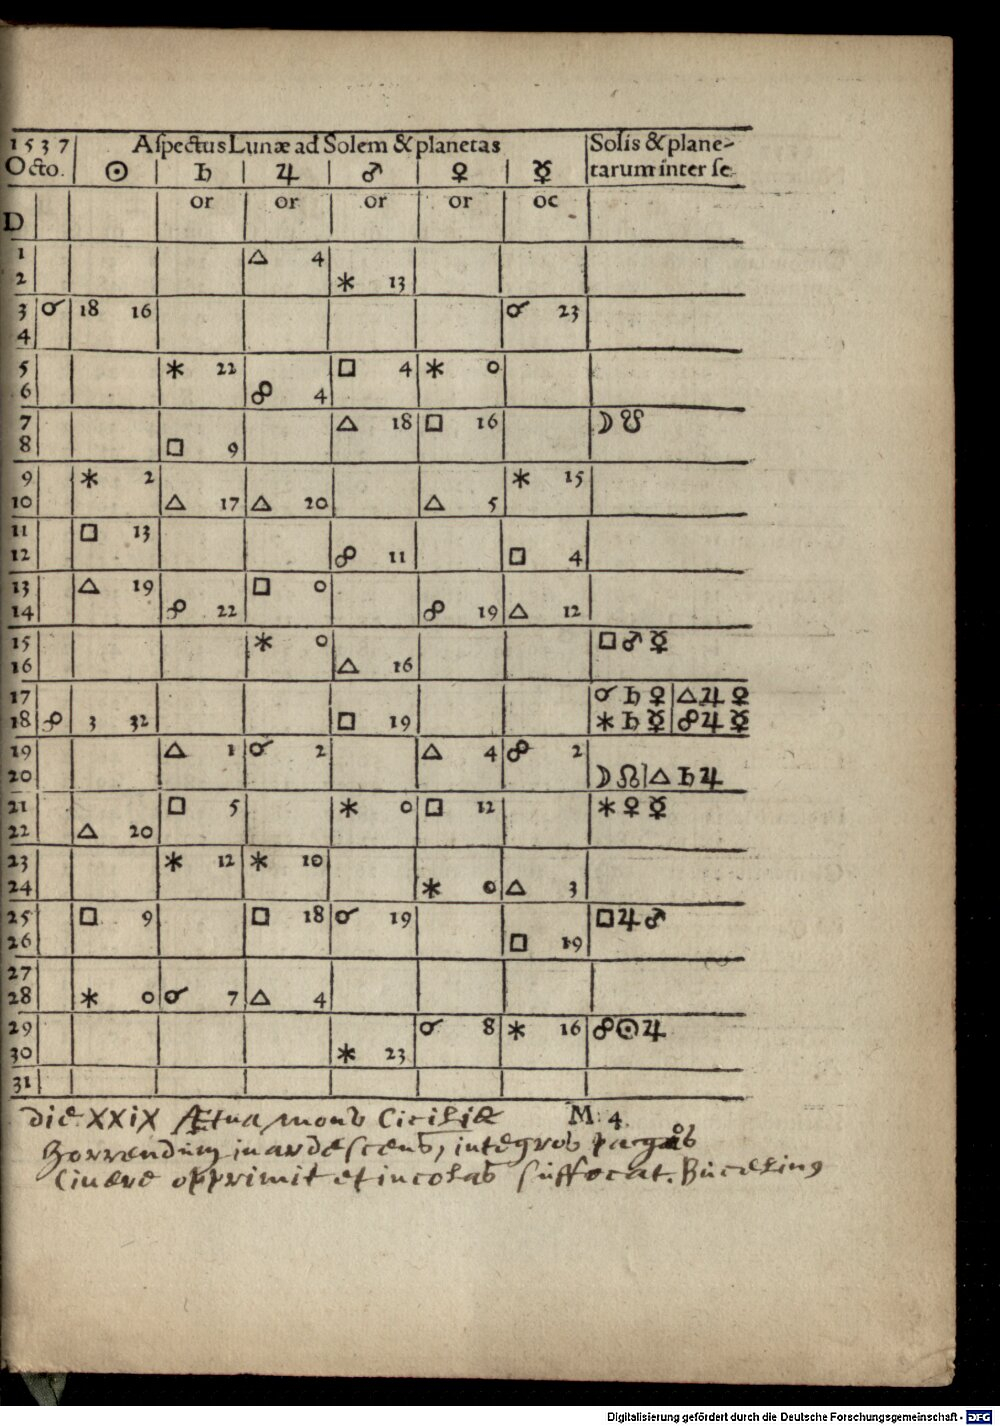 1537 Aſpectus Lunæ ad Solem & planetas Solis & plane-
Octo. ☉ ♄ ♃ ♂ ♀ ☿ tarum inter ſe.
D or or or or oc
1 △ 4
2 ✶ 13
3 ☌ 18 16 ☌ 23
4
5 ✶ 22 □ 4 ✶ 0
6 ☍ 4
7 △ 18 □ 16 ☽ ☋
8 □ 9
9 ✶ 2 ✶ 15
10 △ 17 △ 20 △ 5
11 □ 13
12 ☍ 11 □ 4
13 △ 19 □ 0
14 ☍ 22 ☍ 19 △ 12
15 ✶ 0 □ ♂ ☿
16 △ 16
17 ☌ ♄ ♀ | △ ♃ ♀
18 ☍ 3 32 □ 19 ✶ ♄ ☿ | ☍ ♃ ☿
19 △ 1 ☌ 2 △ 4 ☍ 2
20 ☽ ☊ | △ ♄ ♃
21 □ 5 ✶ 0 □ 12 ✶ ♀ ☿
22 △ 20
23 ✶ 12 ✶ 10
24 ✶ 0 △ 3
25 □ 9 □ 18 ☌ 19 □ ♃ ♂
26 □ 19
27
28 ✶ 0 ☌ 7 △ 4
29 ☌ 8 ✶ 16 ☍ ☉ ♃
30 ✶ 23
31
M 4
die XXIX Ætna mons Ciciliæ
horrendum inardescens, integros pagos
Cinere opprimit et incolas suffocat. Bucelinus
Digitalisierung gefördert durch die Deutsche Forschungsgemeinschaft - DFG